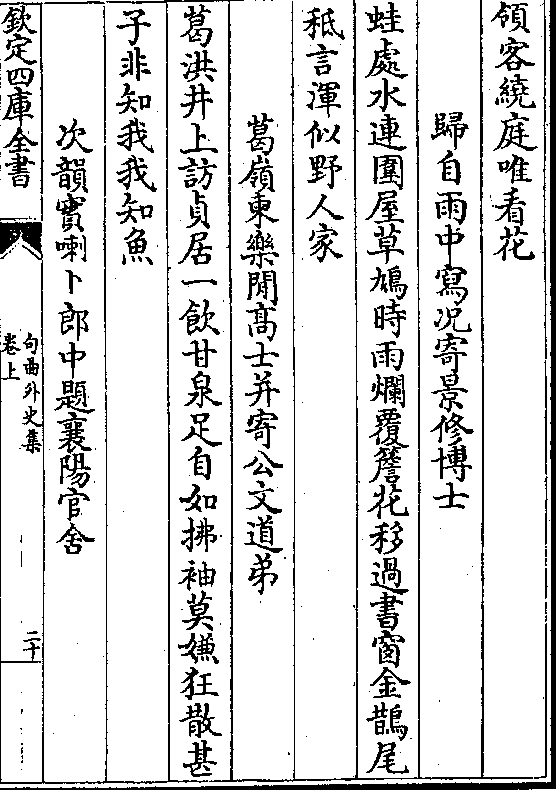 領客繞庭唯看花
歸自雨中寫况寄景修博士
蛙處水連圍屋草鳩時雨爛覆簷花移過書窗金鵲尾
秪言渾似野人家
葛嶺東樂閒髙士并寄公文道弟
葛洪井上訪貞居一飲甘泉足自如拂袖莫嫌狂散甚
子非知我我知魚
次韻竇喇卜郎中題襄陽官舍
欽定四庫全書
句曲外史集
卷上
二十